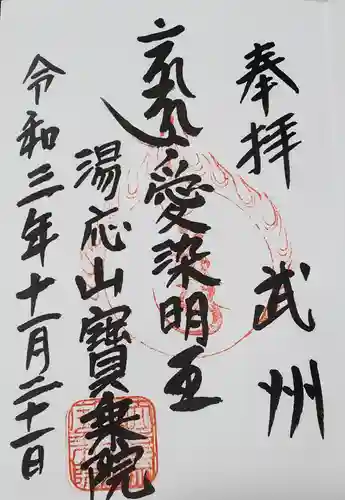 奉拝
武州
愛染明王
湯応山寶乗院
令和三年十一月二十一日